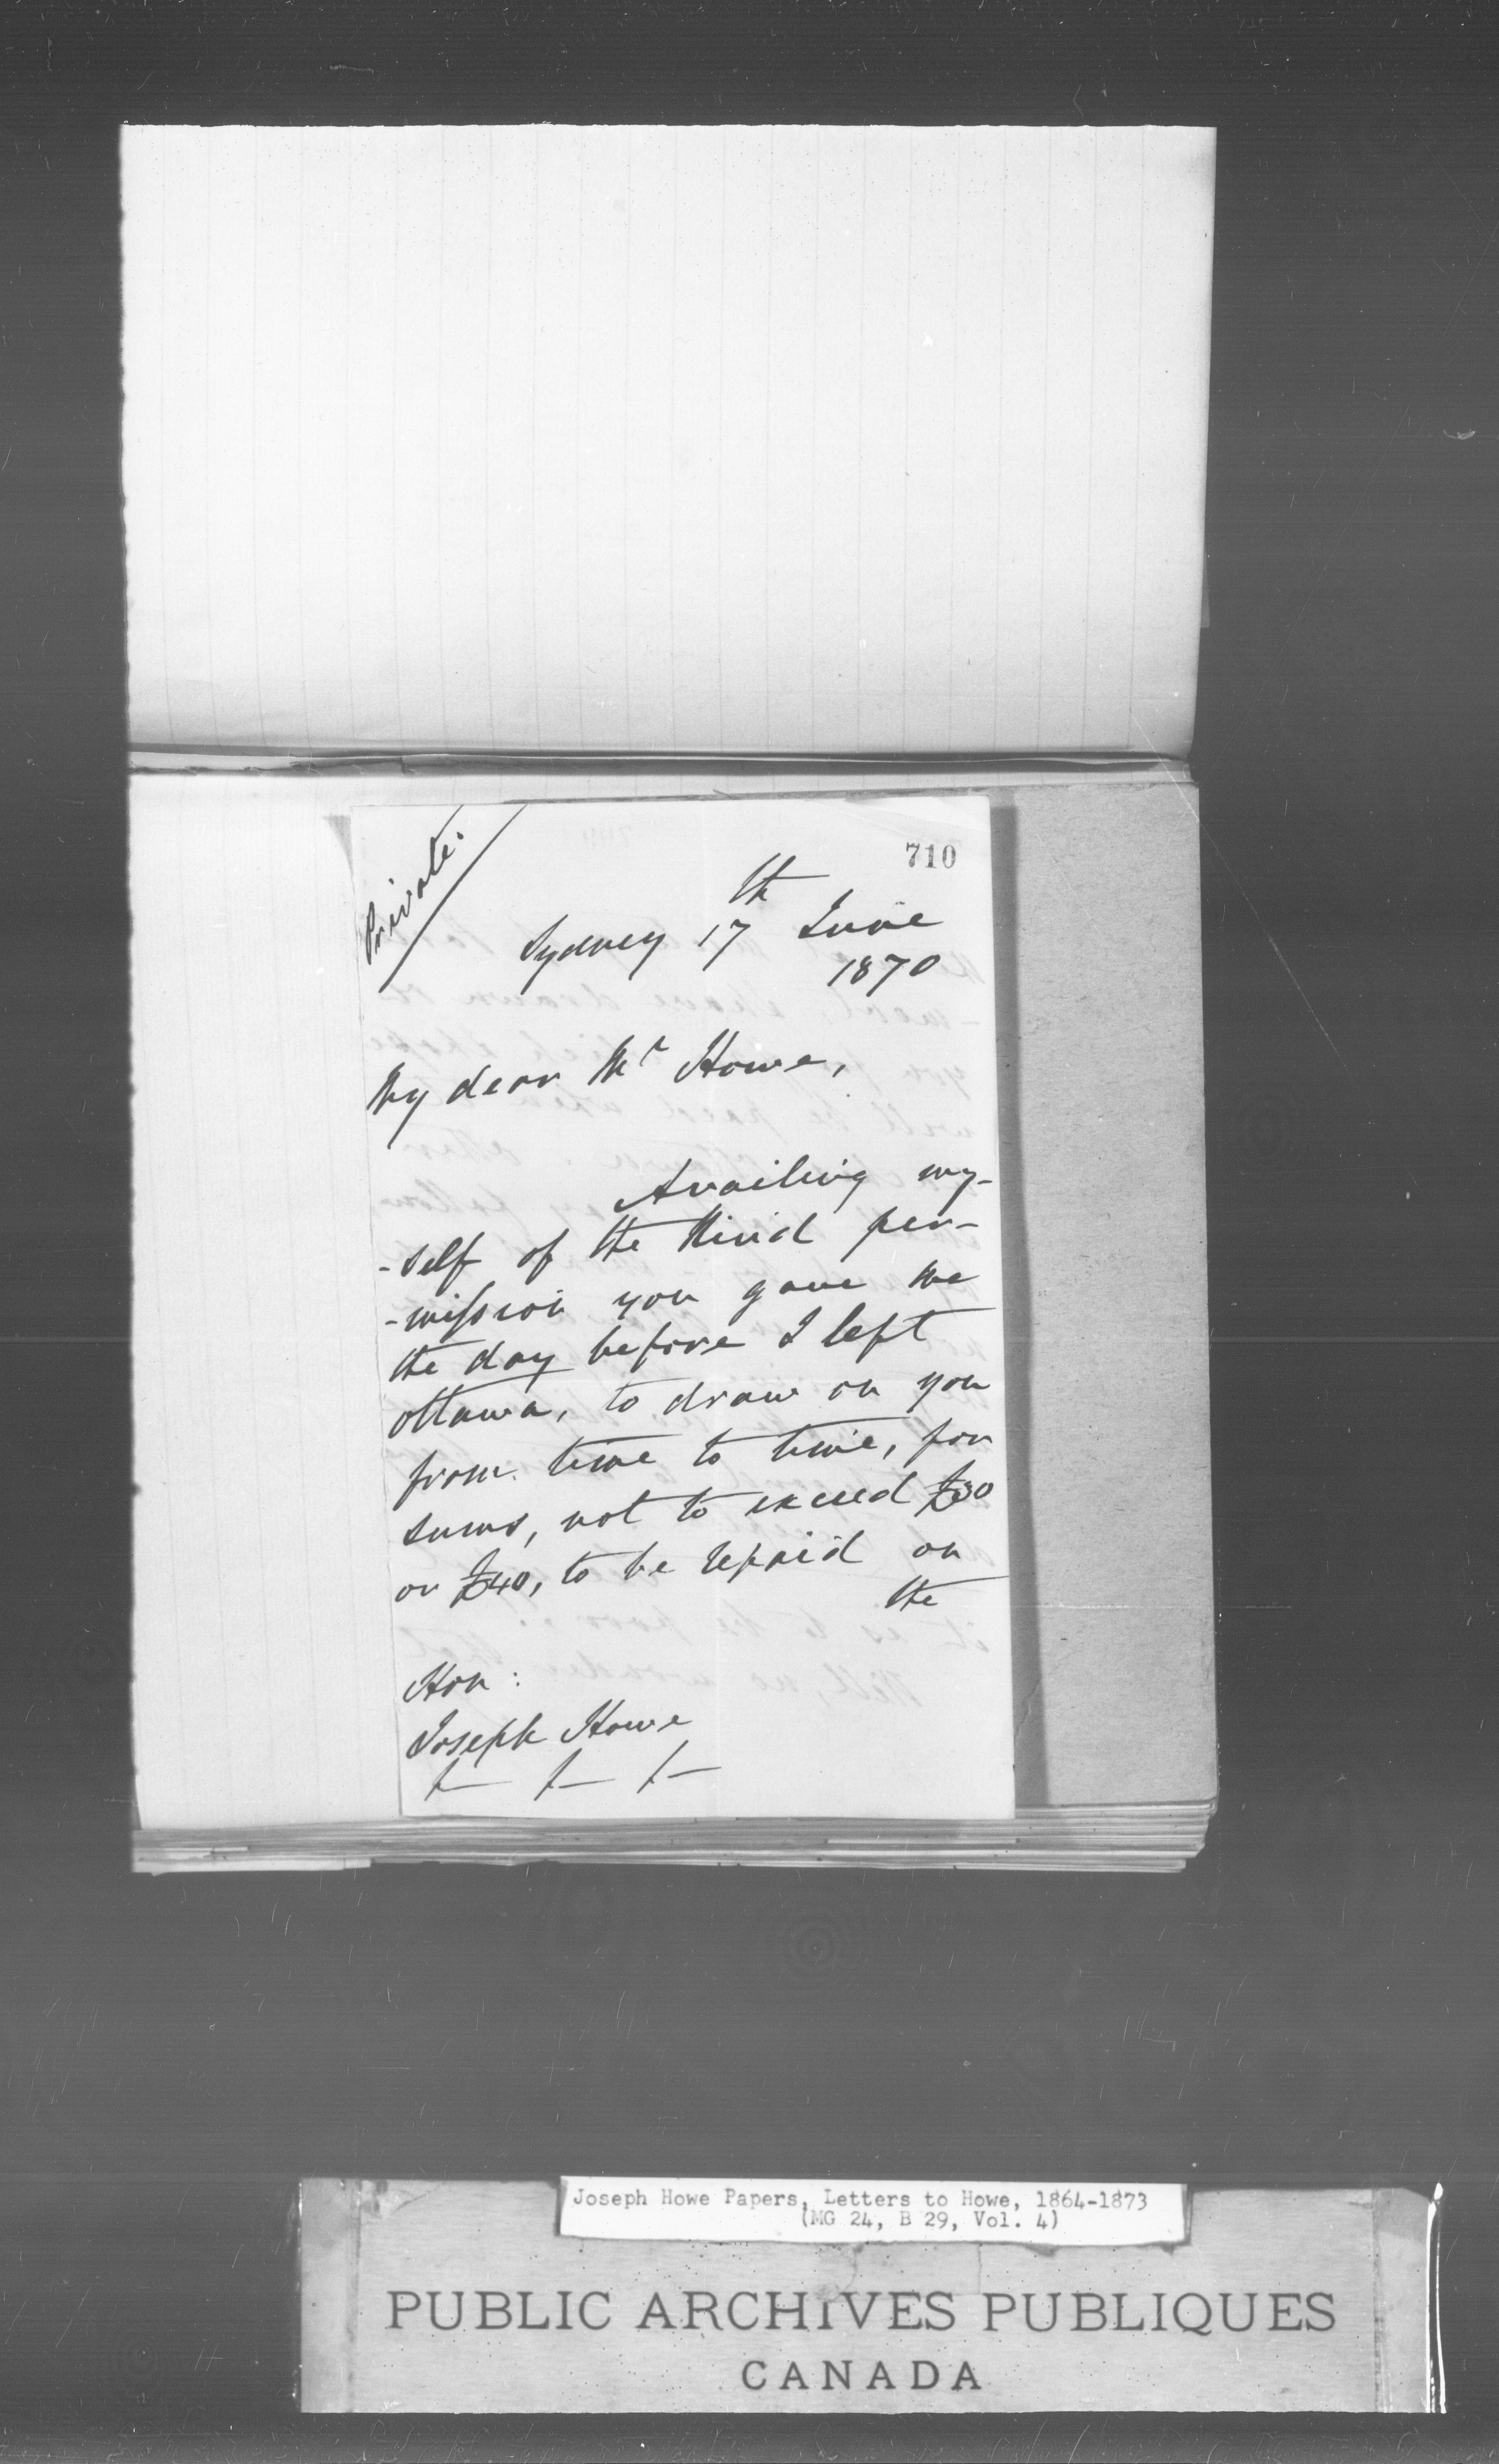 Private.
710
Sydney 17th June
1870
My dear Mr Howe,
Availing my-
-self of the kind per-
-mission you gave me
the day before I left
Ottawa, to draw on you
from time to time, for
sums, not to exceed £30
or £40, to be repaid on
the
Hon:
Joseph Howe
Joseph Howe Papers, Letters to Howe, 1864-1873
(MG 24, B 29, Vol. 4)
PUBLIC ARCHIVES PUBLIQUES
CANADA